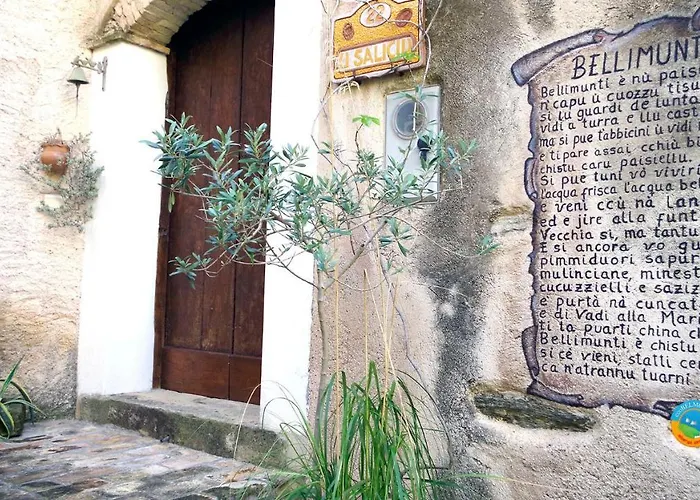 22
I SALICI
BELLIMUNTI
Bellimunti è nù pais
n'capu ù cuozzu tisu
si lu guardi de lunta
vidi a turra e llu cast
ma si pue t'abbicini ù vidi
e ti pare assai cchiù b
chistu caru paisiellu.
Si pue tuni vò viviri
l'acqua frisca l'acqua be
e veni ccù nà lan
ed e jire alla funt
Vecchia si, ma tantu
E si ancora vo gu
pimmiduori sapur
mulinciane, minest
cucuzzielli e saziz
e' purtà nà cuncat
e di Vadi alla Mari
ti ta puarti china ch
Bellimunti è chistu
si cè vieni, statti cer
ca n'atrannu tuarni